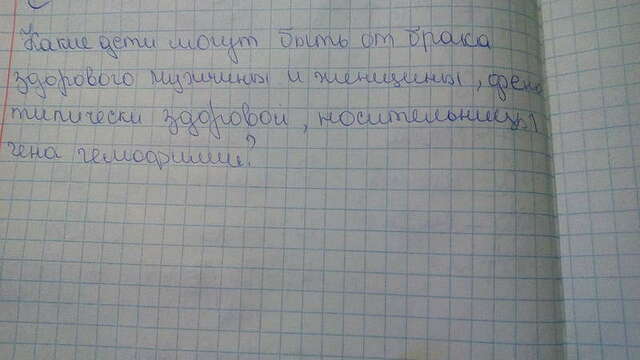 Какие дети могут быть от брака
здорового мужчины и женщины, фено
типически здоровой, носительницы
гена гемофилии?